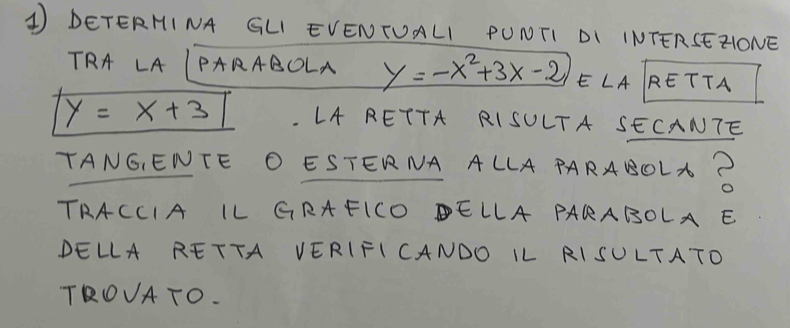 1) DETERMINA GLI EVENTUALI PUNTI DI INTERSEZIONE
TRA LA PARABOLA Y = -X²+3X-2 E LA RETTA
Y = X+3 . LA RETTA RISULTA SECANTE
TANGENTE O ESTERNA ALLA PARABOLA ?
TRACCIA IL GRAFICO DELLA PARABOLA E
DELLA RETTA VERIFICANDO IL RISULTATO
TROVATO.